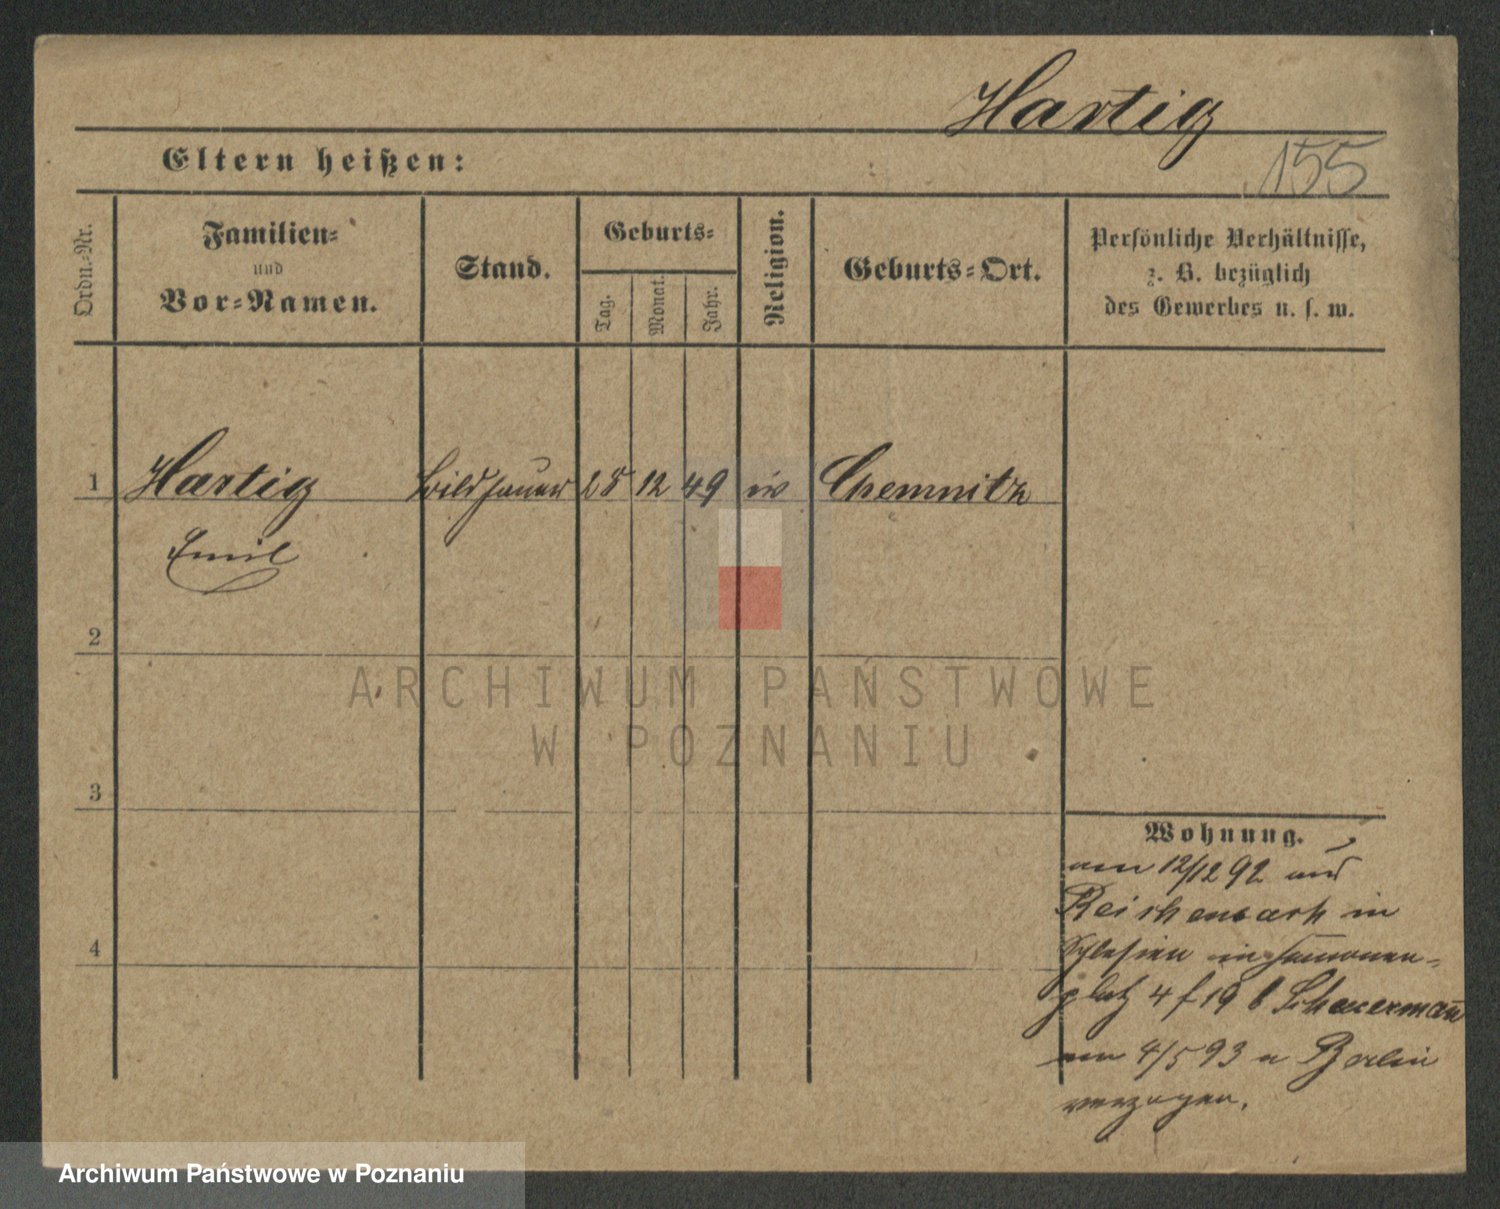 Hartig
155
Eltern heißen:
Ordn.-Nr.
Familien-
und
Vor-Namen.
Stand.
Geburts-
Tag.
Monat.
Jahr.
Religion.
Geburts-Ort.
Persönliche Verhältnisse,
z. B. bezüglich
des Gewerbes u. s. w.
1 Hartig Bildhauer 28 12 49 Chemnitz
Emil
2
ARCHIWUM PAŃSTWOWE
W POZNANIU
3
Wohnung.
am 12/12 92 aus
Reichenbach in
Schlesien
4
platz 4 b Schauermann
am 4/5 93 n Berlin
verzogen.
Archiwum Państwowe w Poznaniu